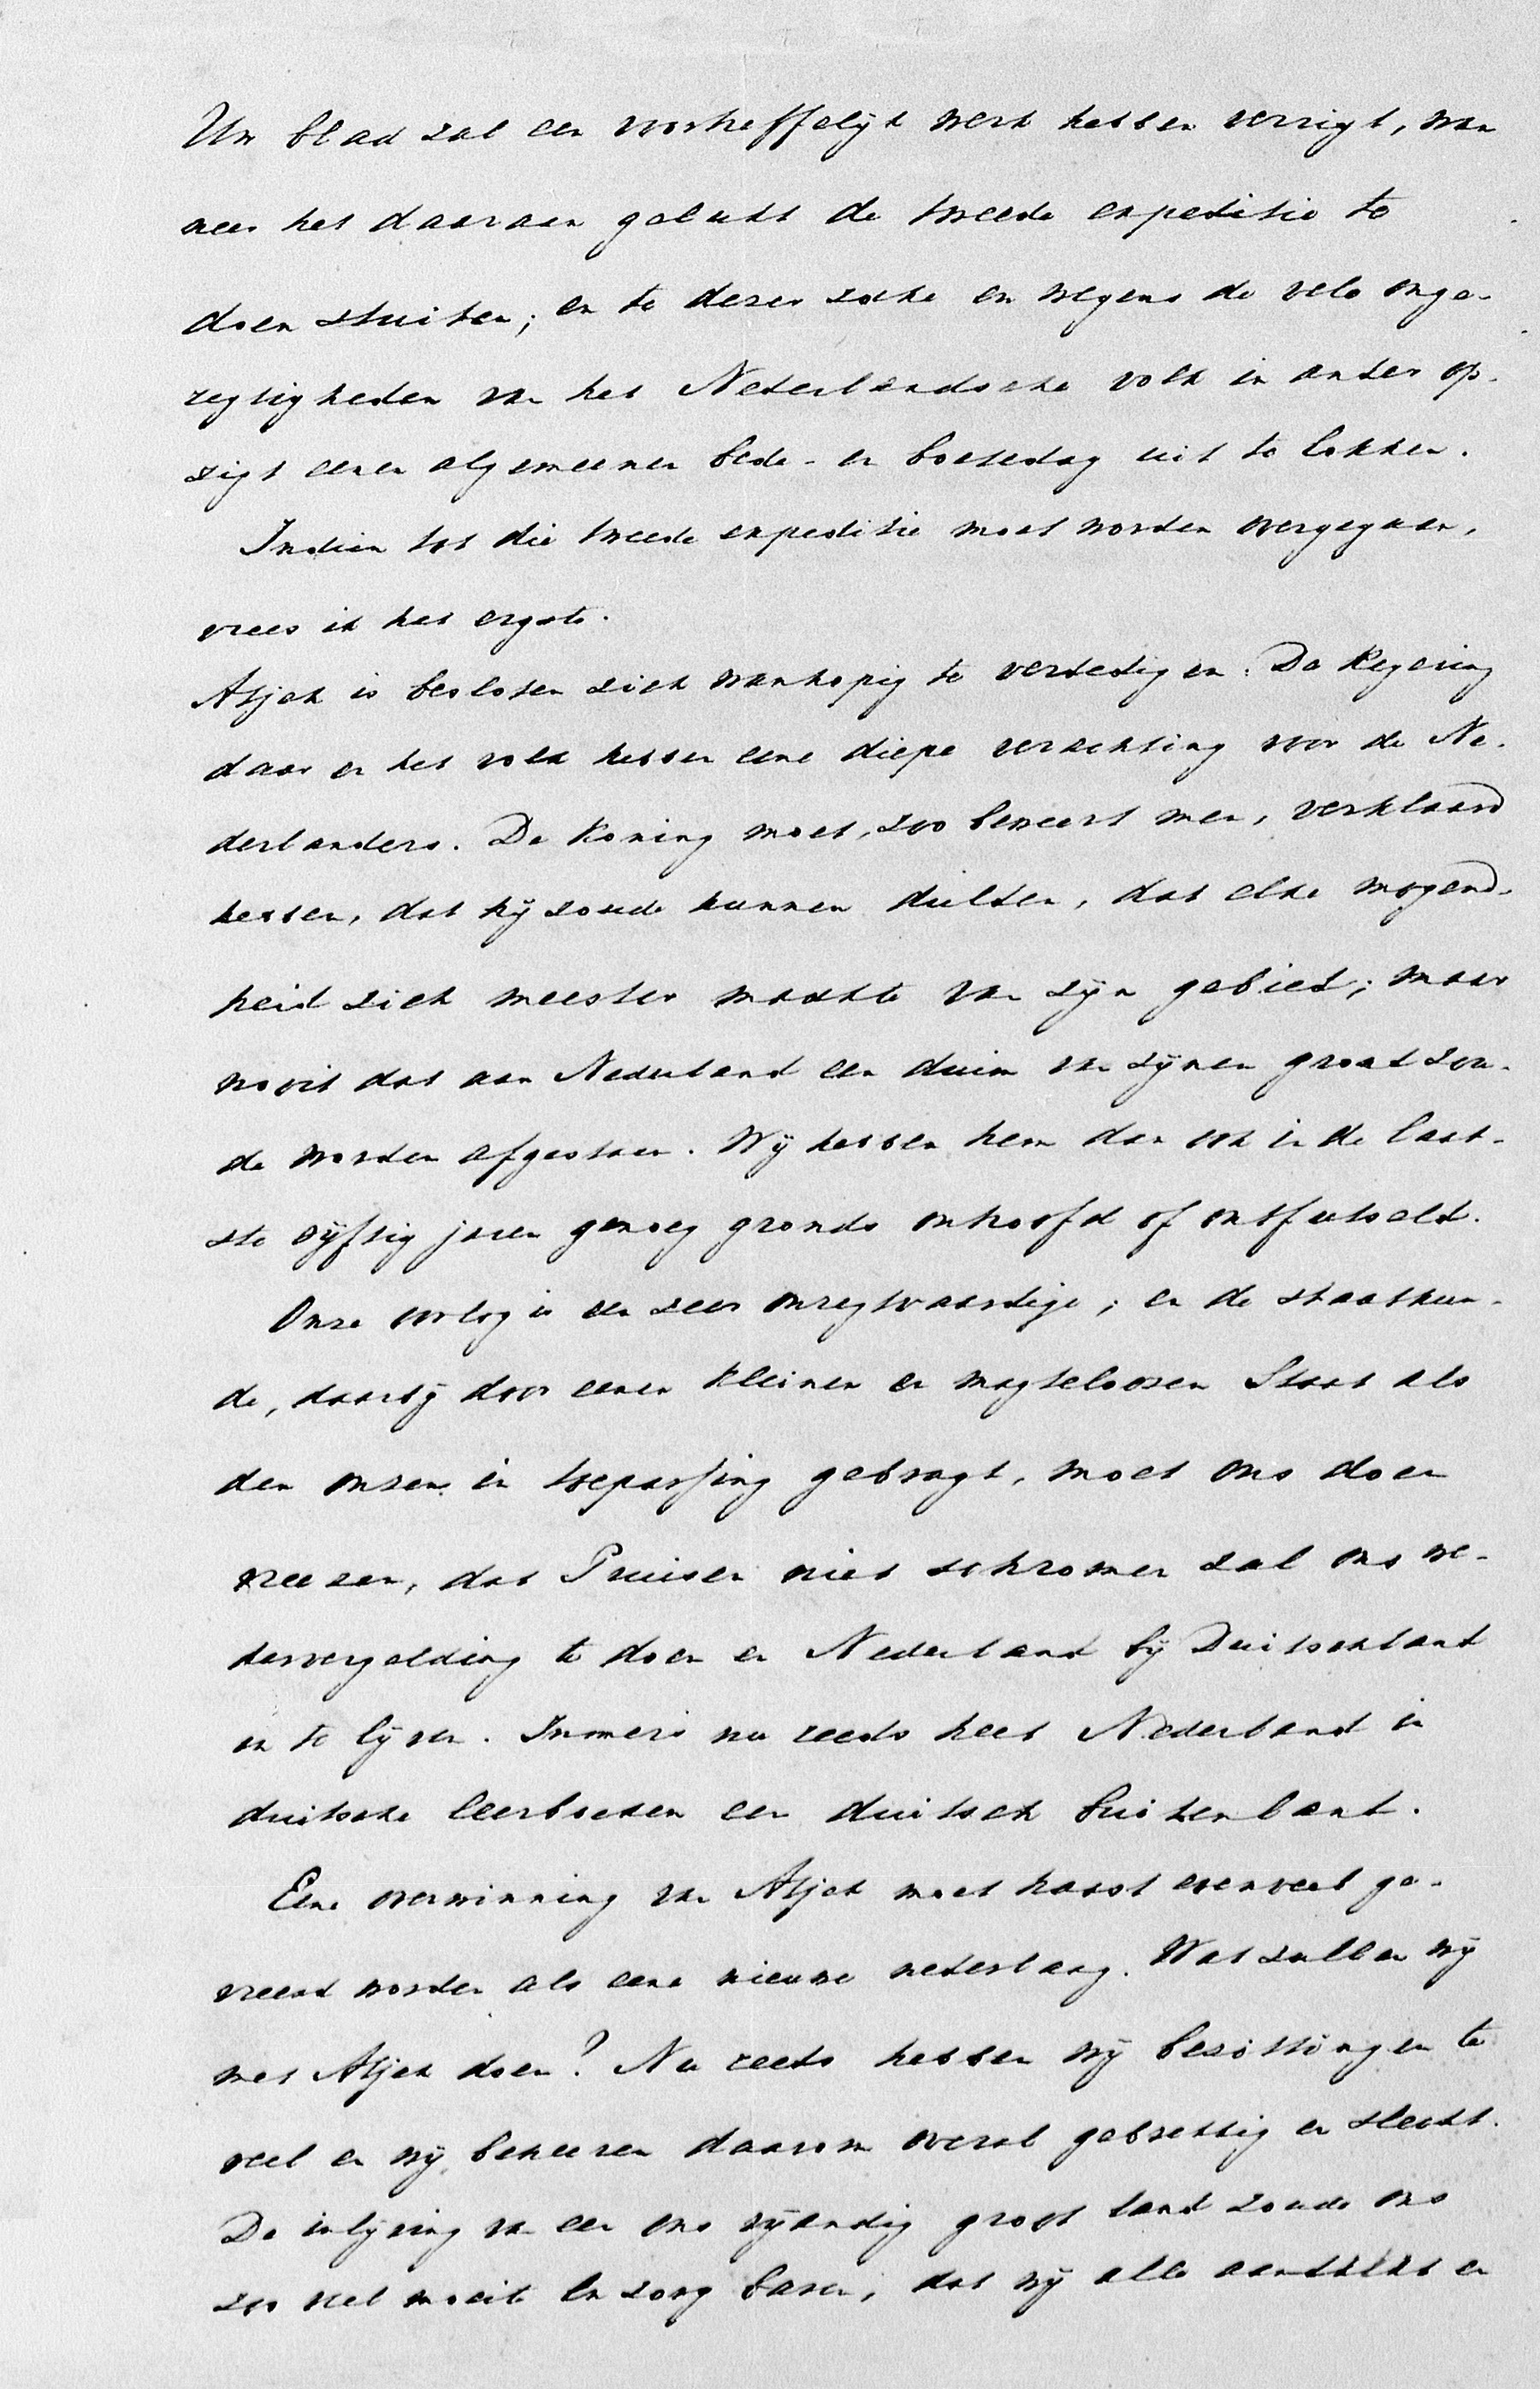 Uw blad zal een voortreffelijk werk hebben verrigt, wan
neer het daaraan gelukt de tweede expeditie te
doen stuiten; en te dezer zake en wegens de vele onge-
regtigheden van het Nederlandsche volk in ander op-
zigt eenen algemeenen bede- en boetedag uit te lokken.
Indien tot die tweede expeditie moet worden overgegaan,
vrees ik het ergste.
Atjeh is besloten zich wanhopig te verdedigen. De Regering
daar en het volk hebben eene diepe verachting voor de Ne-
derlanders. De Koning moet, zoo beweert men, verklaard
hebben, dat hij zoude kunnen dulden, dat elke mogend-
heid zich meester maakte van zijn gebied; maar
nooit dat aan Nederland een duim van zijnen grond zou-
de worden afgestaan. Wij hebben hem dan ook in de laat-
ste vijftig jaren genoeg gronds ontroofd of ontfutseld.
Onze oorlog is een zeer onregtvaardige; en de staatkun-
de, daarbij door eenen kleinen en magteloozen Staat als
den onzen in toepassing gebragt, moet ons doen
vreezen, dat Pruisen niet schromen zal ons we-
dervergelding te doen en Nederland bij Duitschland
in te lijven. Immers nu reeds heet Nederland in
duitsche leerboeken een duitsch buitenland.
Eene overwinning van Atjeh moet haast evenveel ge-
vreesd worden als eene nieuwe nederlaag. Wat zullen wij
met Atjeh doen? Nu reeds hebben wij bezittingen te
veel en wij beheeren daarom overal gebrekkig en slecht.
De inlijving van een ons vijandig groot land zoude ons
zoo veel moeite en zorg baren, dat wij alle aandacht en